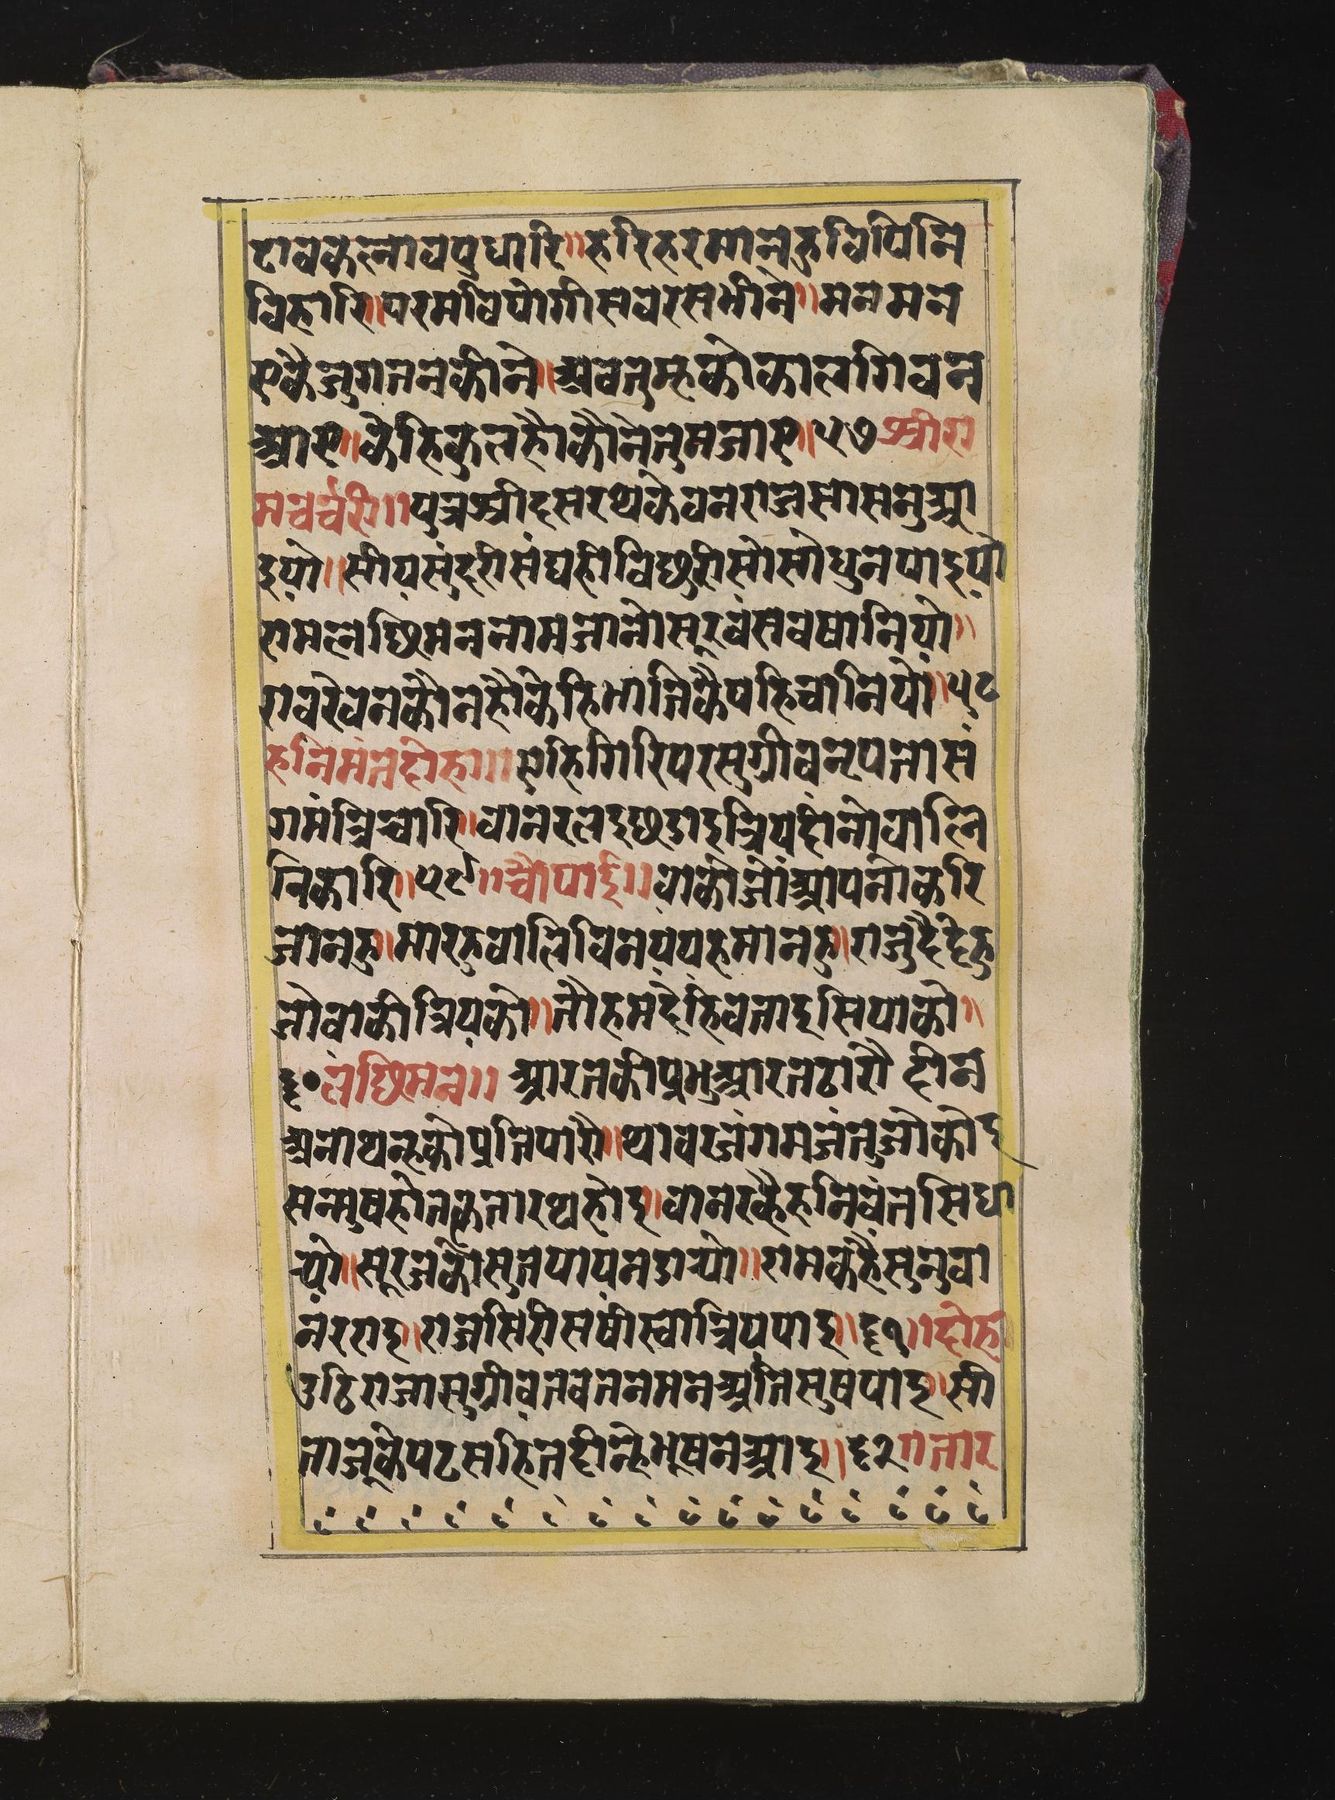 टावकलावपुधारि॥हरिहरमानहुविपिनि
विहारि॥परमवियोगीसवरसभीने॥मनमन
एकैजुगतनकीने॥अवतुम्हकोकालगिवन
आए॥केहिकुलहौकौनेनुमजाए॥५७श्रीरा
मचर्चरी॥पुत्रश्रीदसरथकेवनराजसासनुआ
इयो॥सीयसुंदरीसंघहीविछुरीसोसोधुनपाइयो
रामलछिमननामजानोसूरवंसवषानियो॥
रावरेवनकौनहौकेहिभाजिकैपहिचानियो॥५८
हनिमंतदोहा॥एहिगिरिपरसुग्रीवनृपतासं
गमंत्रिचारि॥वानरलइछडाइत्रियदीनोवालि
निकारि॥५९॥चौपाई॥वाकौजोआपनोकरि
जानहु॥मारहुवालिविनययहमानहु॥राजुदैदेहु
जोवाकीत्रियको॥तौहमदेहिवताइसियाको॥
६०लछिमन॥आरतकीप्रभुआरतटारौ दीन
अनाथन्हकोप्रतिपारौ॥थावरजंगमजंतुजोकोइ
सन्मुषहोतकृतारथहोइ॥वानरकैहनिवंतसिधा
र्‍यो॥सूरजकोसुतपायनडार्‍यो॥रामकहैसुनुवा
नरराइ॥राजसिरीसषीस्योत्रियपाइ॥६१॥दोहा
उठिराजासुग्रीवतवतनमनअतिसुषपाइ॥सी
ताजूकेपटसहितदीन्हेभूषनआइ॥६२॥तार